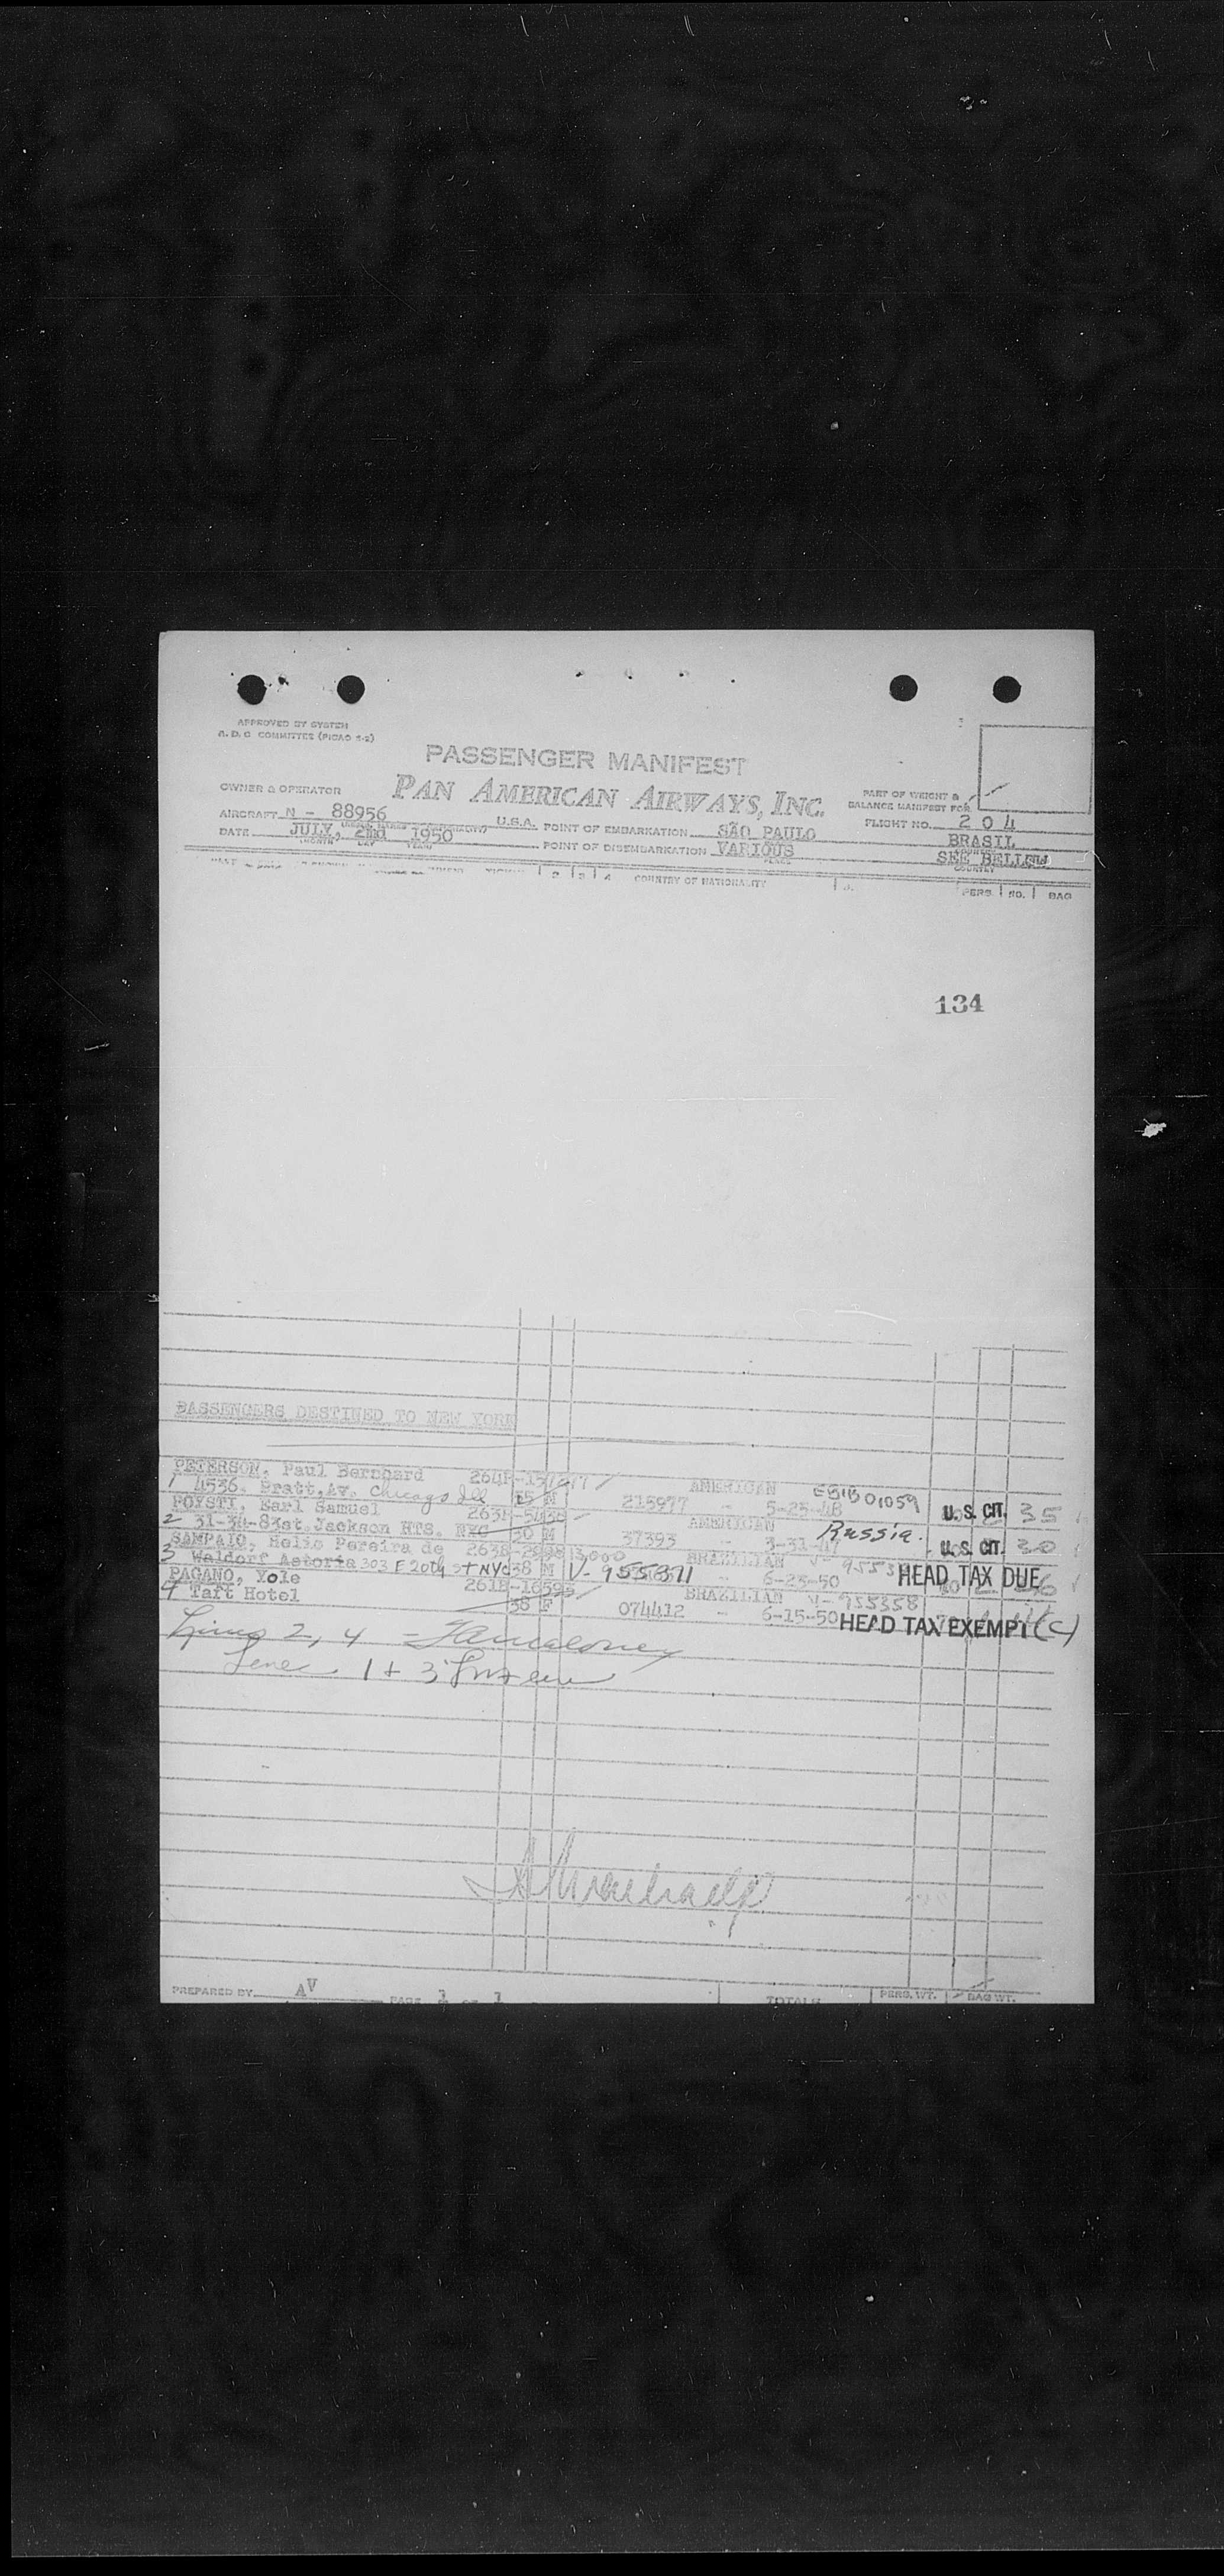 APPROVED BY SYSTEM
A. D. C COMMITTEE (PICAO S-2)
PASSENGER MANIFEST
OWNER & OPERATOR PAN AMERICAN AIRWAYS, INC.
PART OF WEIGHT &
BALANCE MANIFEST FOR
AIRCRAFT N - 88956 U.S.A. POINT OF EMBARKATION SÃO PAULO FLIGHT NO. 2 0 4
DATE JULY, 2nd 1950 POINT OF DISEMBARKATION VARIOUS BRASIL
(MONTH) DAY YEAR PLACE SEE BELLEW
COUNTRY
2 3 4 COUNTRY OF NATIONALITY PERS. NO. BAG
134
PASSENGERS DESTINED TO NEW YORK
PETERSON, Paul Bernhard AMERICAN
1 4536. Pratt. Av. Chicago Ill M 215977 - 5-25-48 U.S. CIT. 35
POYSTI, Earl Samuel AMERICAN Russia.
2 31-34-83st. Jackson HTS. NYC 30 M 37393 U.S. CIT. 30
SAMPAIO, Helio Pereira de BRAZILIAN
3 Waldorf Astoria 303 E 20th St NYC 38 M 6-23-50 HEAD TAX DUE
PAGANO, Yole BRAZILIAN V- 955358
4 Taft Hotel 38 F 074412 - 6-15-50 HEAD TAX EXEMPT (C)
Lines 2, 4 -
Lines 1 + 3
PREPARED BY AV PAGE 1 OF 1 TOTALS PERS. WT. BAG WT.